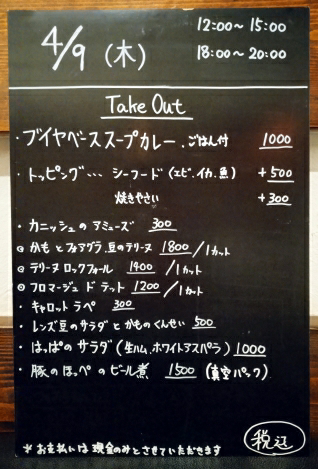 4/9 (木)
12:00～15:00
18:00～20:00
Take Out
・ブイヤベーススープカレー、ごはん付 1000
・トッピング… シーフード(エビ、イカ、魚) +500
焼きやさい +300
・カニッシュのアミューズ 300
◎かもとフォアグラ、豆のテリーヌ 1800/1カット
◎テリーヌロックフォール 1400/1カット
◎フロマージュ ド テット 1200/1カット
・キャロットラペ 300
・レンズ豆のサラダとかものくんせい 500
・はっぱのサラダ(生ハム、ホワイトアスパラ) 1000
・豚のほっぺのビール煮 1500 (真空パック)
*お支払いは現金のみとさせていただきます
税込